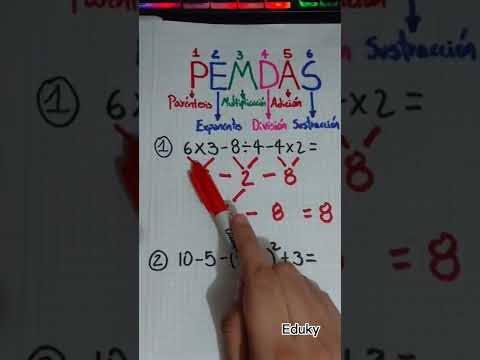 1 2 3 4 5 6
PEMDAS
Paréntesis Multiplicación Adición
Exponentes División Sustracción
① 6×3-8÷4-4×2=
- 2 - 8
- 8 = 8
② 10-5-( )²+3=
Eduky
Sustracción
① 6
= 8